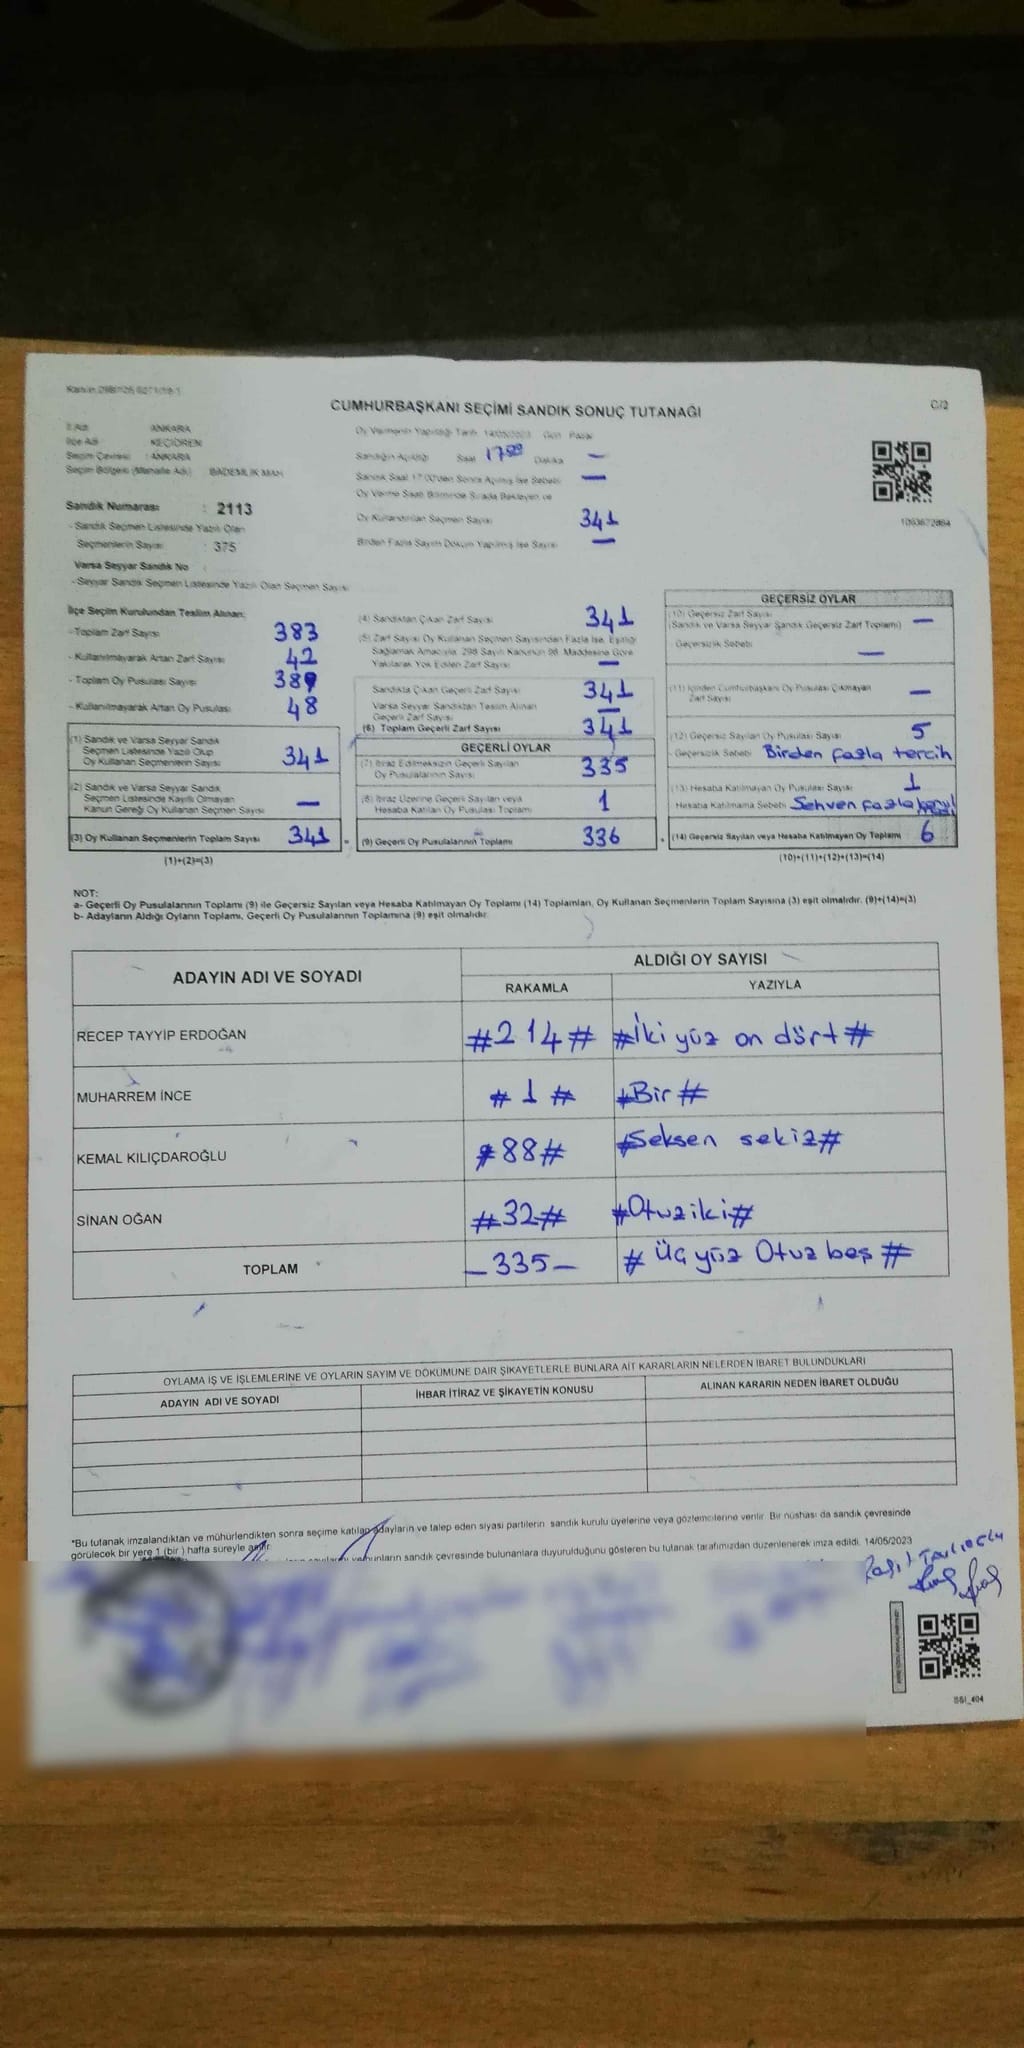 CUMHURBAŞKANI SEÇİMİ SANDIK SONUÇ TUTANAĞI
C/2
İl Adı ANKARA
İlçe Adı KEÇİÖREN
Seçim Çevresi : ANKARA
Seçim Bölgesi (Mahalle Adı) BADEMLİK MAH
Sandık Numarası : 2113
- Sandık Seçmen Listesinde Yazılı Olan
Seçmenlerin Sayısı : 375
Varsa Seyyar Sandık No
- Seyyar Sandık Seçmen Listesinde Yazılı Olan Seçmen Sayısı
Oy Vermenin Yapıldığı Tarih 14/05/2023 Gün Pazar
Sandığın Açıldığı Saat 17 Dakika —
Sandık Saat 17:00'den Sonra Açılmış İse Sebebi —
Oy Verme Saati Bitiminde Sırada Bekleyen ve
Oy Kullandırılan Seçmen Sayısı 341
Birden Fazla Sayım Döküm Yapılmış İse Sayısı —
1093672884
İlçe Seçim Kurulundan Teslim Alınan:
- Toplam Zarf Sayısı 383
- Kullanılmayarak Artan Zarf Sayısı 42
- Toplam Oy Pusulası Sayısı 389
- Kullanılmayarak Artan Oy Pusulası 48
(1) Sandık ve Varsa Seyyar Sandık
Seçmen Listesinde Yazılı Olup
Oy Kullanan Seçmenlerin Sayısı 341
(2) Sandık ve Varsa Seyyar Sandık
Seçmen Listesinde Kayıtlı Olmayan
Kanun Gereği Oy Kullanan Seçmen Sayısı —
(3) Oy Kullanan Seçmenlerin Toplam Sayısı 341
(1)+(2)=(3)
(4) Sandıktan Çıkan Zarf Sayısı 341
(5) Zarf Sayısı Oy Kullanan Seçmen Sayısından Fazla İse, Eşitliği
Sağlamak Amacıyla, 298 Sayılı Kanunun 98. Maddesine Göre
Yakılarak Yok Edilen Zarf Sayısı —
Sandıkta Çıkan Geçerli Zarf Sayısı 341
Varsa Seyyar Sandıktan Teslim Alınan
Geçerli Zarf Sayısı —
(6) Toplam Geçerli Zarf Sayısı 341
GEÇERLİ OYLAR
(7) İtiraz Edilmeksizin Geçerli Sayılan
Oy Pusulalarının Sayısı 335
(8) İtiraz Üzerine Geçerli Sayılan veya
Hesaba Katılan Oy Pusulası Toplamı 1
(9) Geçerli Oy Pusulalarının Toplamı 336
GEÇERSİZ OYLAR
(10) Geçersiz Zarf Sayısı
(Sandık ve Varsa Seyyar Sandık Geçersiz Zarf Toplamı) —
Geçersizlik Sebebi —
(11) İçinden Cumhurbaşkanı Oy Pusulası Çıkmayan
Zarf Sayısı —
(12) Geçersiz Sayılan Oy Pusulası Sayısı 5
- Geçersizlik Sebebi Birden fazla tercih
(13) Hesaba Katılmayan Oy Pusulası Sayısı 1
Hesaba Katılmama Sebebi Sehven fazla
(14) Geçersiz Sayılan veya Hesaba Katılmayan Oy Toplamı 6
(10)+(11)+(12)+(13)=(14)
NOT:
a- Geçerli Oy Pusulalarının Toplamı (9) ile Geçersiz Sayılan veya Hesaba Katılmayan Oy Toplamı (14) Toplamları, Oy Kullanan Seçmenlerin Toplam Sayısına (3) eşit olmalıdır. (9)+(14)=(3)
b- Adayların Aldığı Oyların Toplamı, Geçerli Oy Pusulalarının Toplamına (9) eşit olmalıdır.
ADAYIN ADI VE SOYADI
ALDIĞI OY SAYISI
RAKAMLA YAZIYLA
RECEP TAYYİP ERDOĞAN #214# #İki yüz on dört#
MUHARREM İNCE #1# #Bir#
KEMAL KILIÇDAROĞLU #88# #Seksen sekiz#
SİNAN OĞAN #32# #Otuziki#
TOPLAM –335– # Üç yüz Otuz beş #
OYLAMA İŞ VE İŞLEMLERİNE VE OYLARIN SAYIM VE DÖKÜMÜNE DAİR ŞİKAYETLERLE BUNLARA AİT KARARLARIN NELERDEN İBARET BULUNDUKLARI
ADAYIN ADI VE SOYADI İHBAR İTİRAZ VE ŞİKAYETİN KONUSU ALINAN KARARIN NEDEN İBARET OLDUĞU
*Bu tutanak imzalandıktan ve mühürlendikten sonra seçime katılan adayların ve talep eden siyasi partilerin sandık kurulu üyelerine veya gözlemcilerine verilir. Bir nüshası da sandık çevresinde
görülecek bir yere 1 (bir) hafta süreyle asılır.
sandık çevresinde bulunanlara duyurulduğunu gösteren bu tutanak tarafımızdan düzenlenerek imza edildi. 14/05/2023
SSI_404